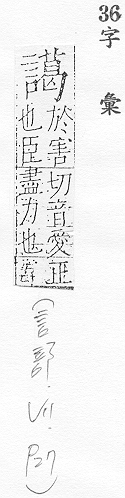 36
字彙
譪
於害切音愛正
也臣盡力也
(言部·VII·P27)